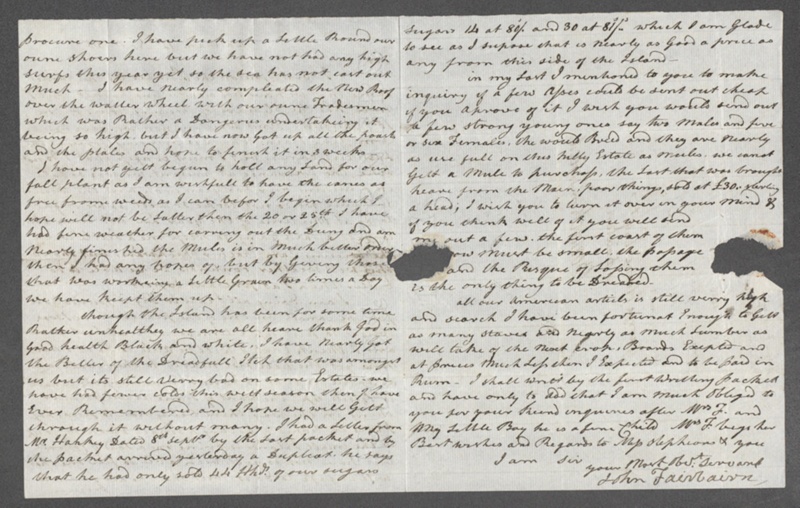 procure one. I have pick up a Little Round our
oune Shoers here but we have not had any high
Surfs this year yet so the sea has not cast out
Much - I have nearly compleated the New Roof
over the watter wheel with our oune Tradesmen
which was Rather a Dangerous undertakeing it
being so high but I have now Got up all the posts
and the plates and hope to finish it in 3 weeks
I have not yett begun to holl any Land for our
fall plant as I am wishfull to have the canes as
free from weeds as I can befor I begin which I
hope will not be Latter then the 20 or 25th I have
had fine weather for carring out the Dung and am
Nearly finished the Mules is in Much better order
then I had any hopes of, but by Giveing those
that was workeing a Little Grain two times a Day
we have keept them up.
though the Island has been for some time
Rather unhealthey we are all heare thank God in
Good health Black and white. I have Nearly Got
the Better of the Dreadfull Itch that was amongst
us but its still verry bad on some Estates. we
have had fewer colds this wett season then I have
Ever Remembered, and I hope we will Gett
through it without many. I had a Letter from
Mr Hankey Dated 8th Septr by the Last packet and by
the packet arrived yesterday a Duplicat. he says
that he had only sold 44 Hhds of our sugars
Sugars 14 at 86/ and 30 at 85/ which I am Glade
to see as I supose that is nearly as Good a price as
any from this side of the Island -
in my Last I mentioned to you to make
inquiry if a few Asses could be sent out cheap
if you aprove of it I wish you would send out
a few strong young ones say two Males and five
or six Females. the would Breed and they are Nearly
as use full on this hilly Estate as Mules. we canot
Gett a Mule to purchass, the Last that was brought
heare from the Main, poor things, sold at £30. sterling
a head; I wish you to turn it over in your mind &
if you think well of it you will send
me out a few. the first coast of them
now Must be small, the passage
and the Risque of Lossing them
is the only thing to be Dreaded.
all our american articls is still verry high
and scarch I have been fortunat Enough to Gett
as many staves and Nearly as much Lumber as
will take of the Next crop, Boards Exepted and
at prices Much Less then I Expected and to be paid in
Rum - I shall write by the first Packet
and have only to add that I am much Obliged to
you for your kind inquires after Mrs F. and
My Little Boy he is a fine Child Mrs F. begs her
Best wishes and Regards to Miss Stephens & you
I am Sir
your Most Obt. Servant
John Fairbairn